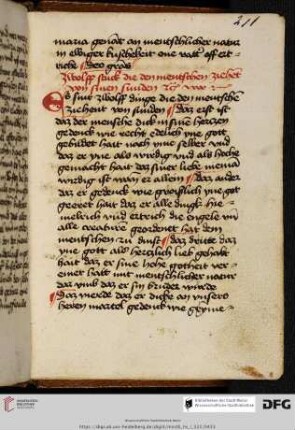 211
maria gent an mentschlicher natur
in ewiger kuscheheit one vatt͛ off ert-
riche Deo grãs
Zwolff stuck die den mentschen ziehet
von sinen sunden
Es sint zwolff dinge die den mentschẽ
ziehent von sunden Daz erst ist
daz der mensche dick in sine hertzen
gedenck wie recht edelich yne gott
gebildet hait nach yme selber vnd
daz er yne also wirdig vnd also hohe
gemacht hait daz siner liche niemã
wirdig ist wan er allein Daz ander
daz er gedenck wie groißlich yne got
geeret hait daz er alle dingk hi-
melrich vnd ertrich die engele vñ
alle creature geordent hat dem
mentschen zu dinst Daz dritte daz
yne gott also hertzlich lieb gehabt
hait daz er sine hohe gotheit ver-
einet hatt mit mentschlicher natur
daz vmb daz er sin bruder wurde
Daz vierde daz er dicke an vnsers
heren martel gedenck wie